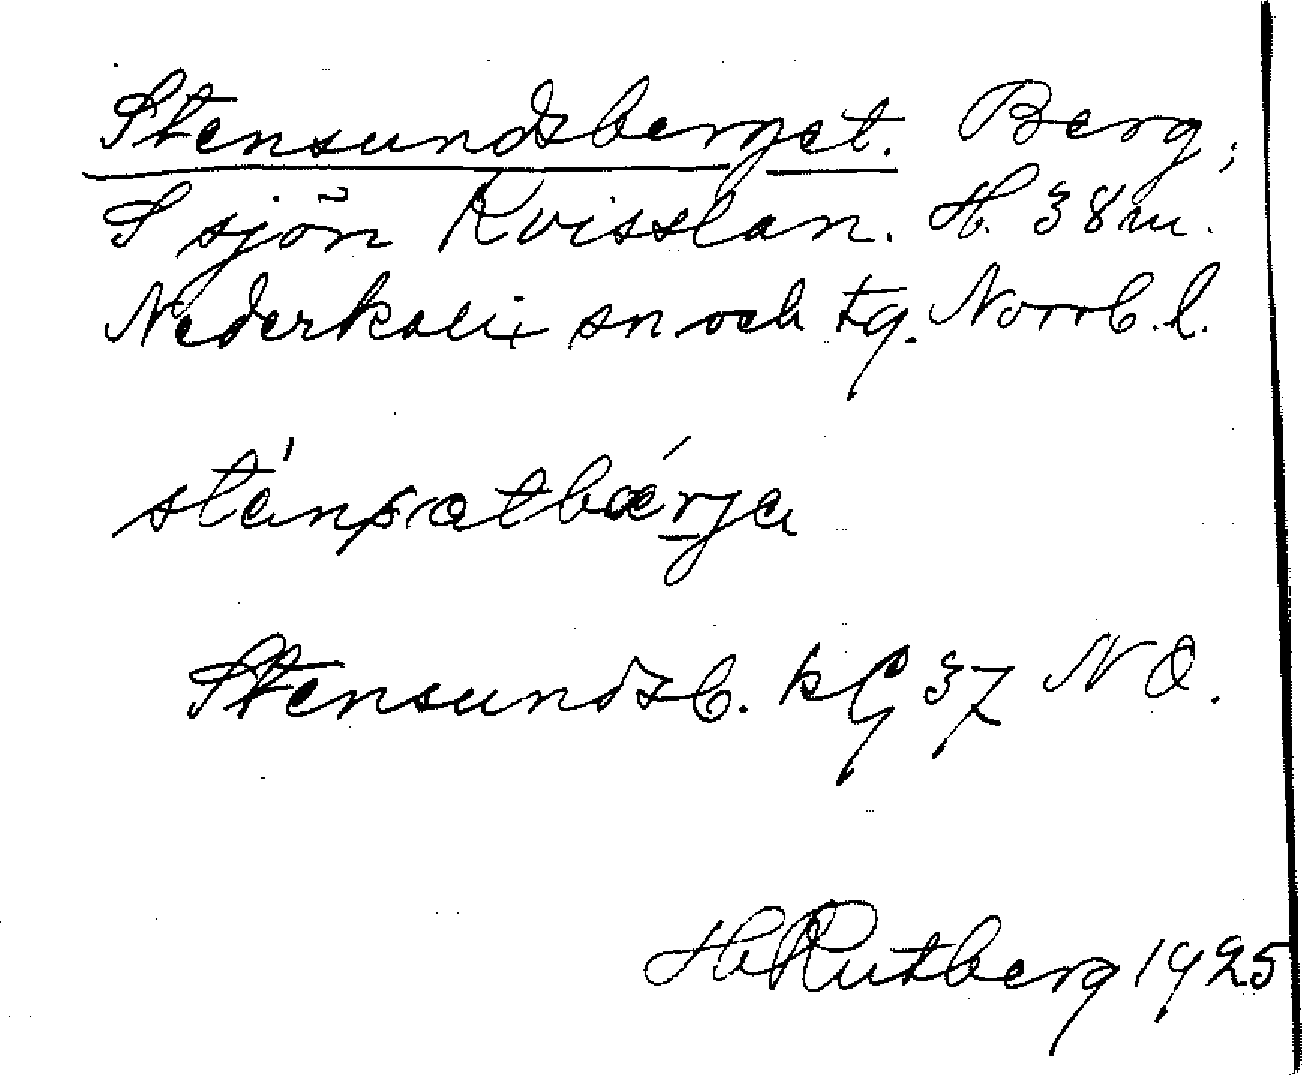 Stensundsberget. Berg,
S sjön Kvisslan. H. 38 m.
Nederkalix sn och tg. Norrb. l.
Stensundsb. kG 37 NO.
H Rutberg 1925